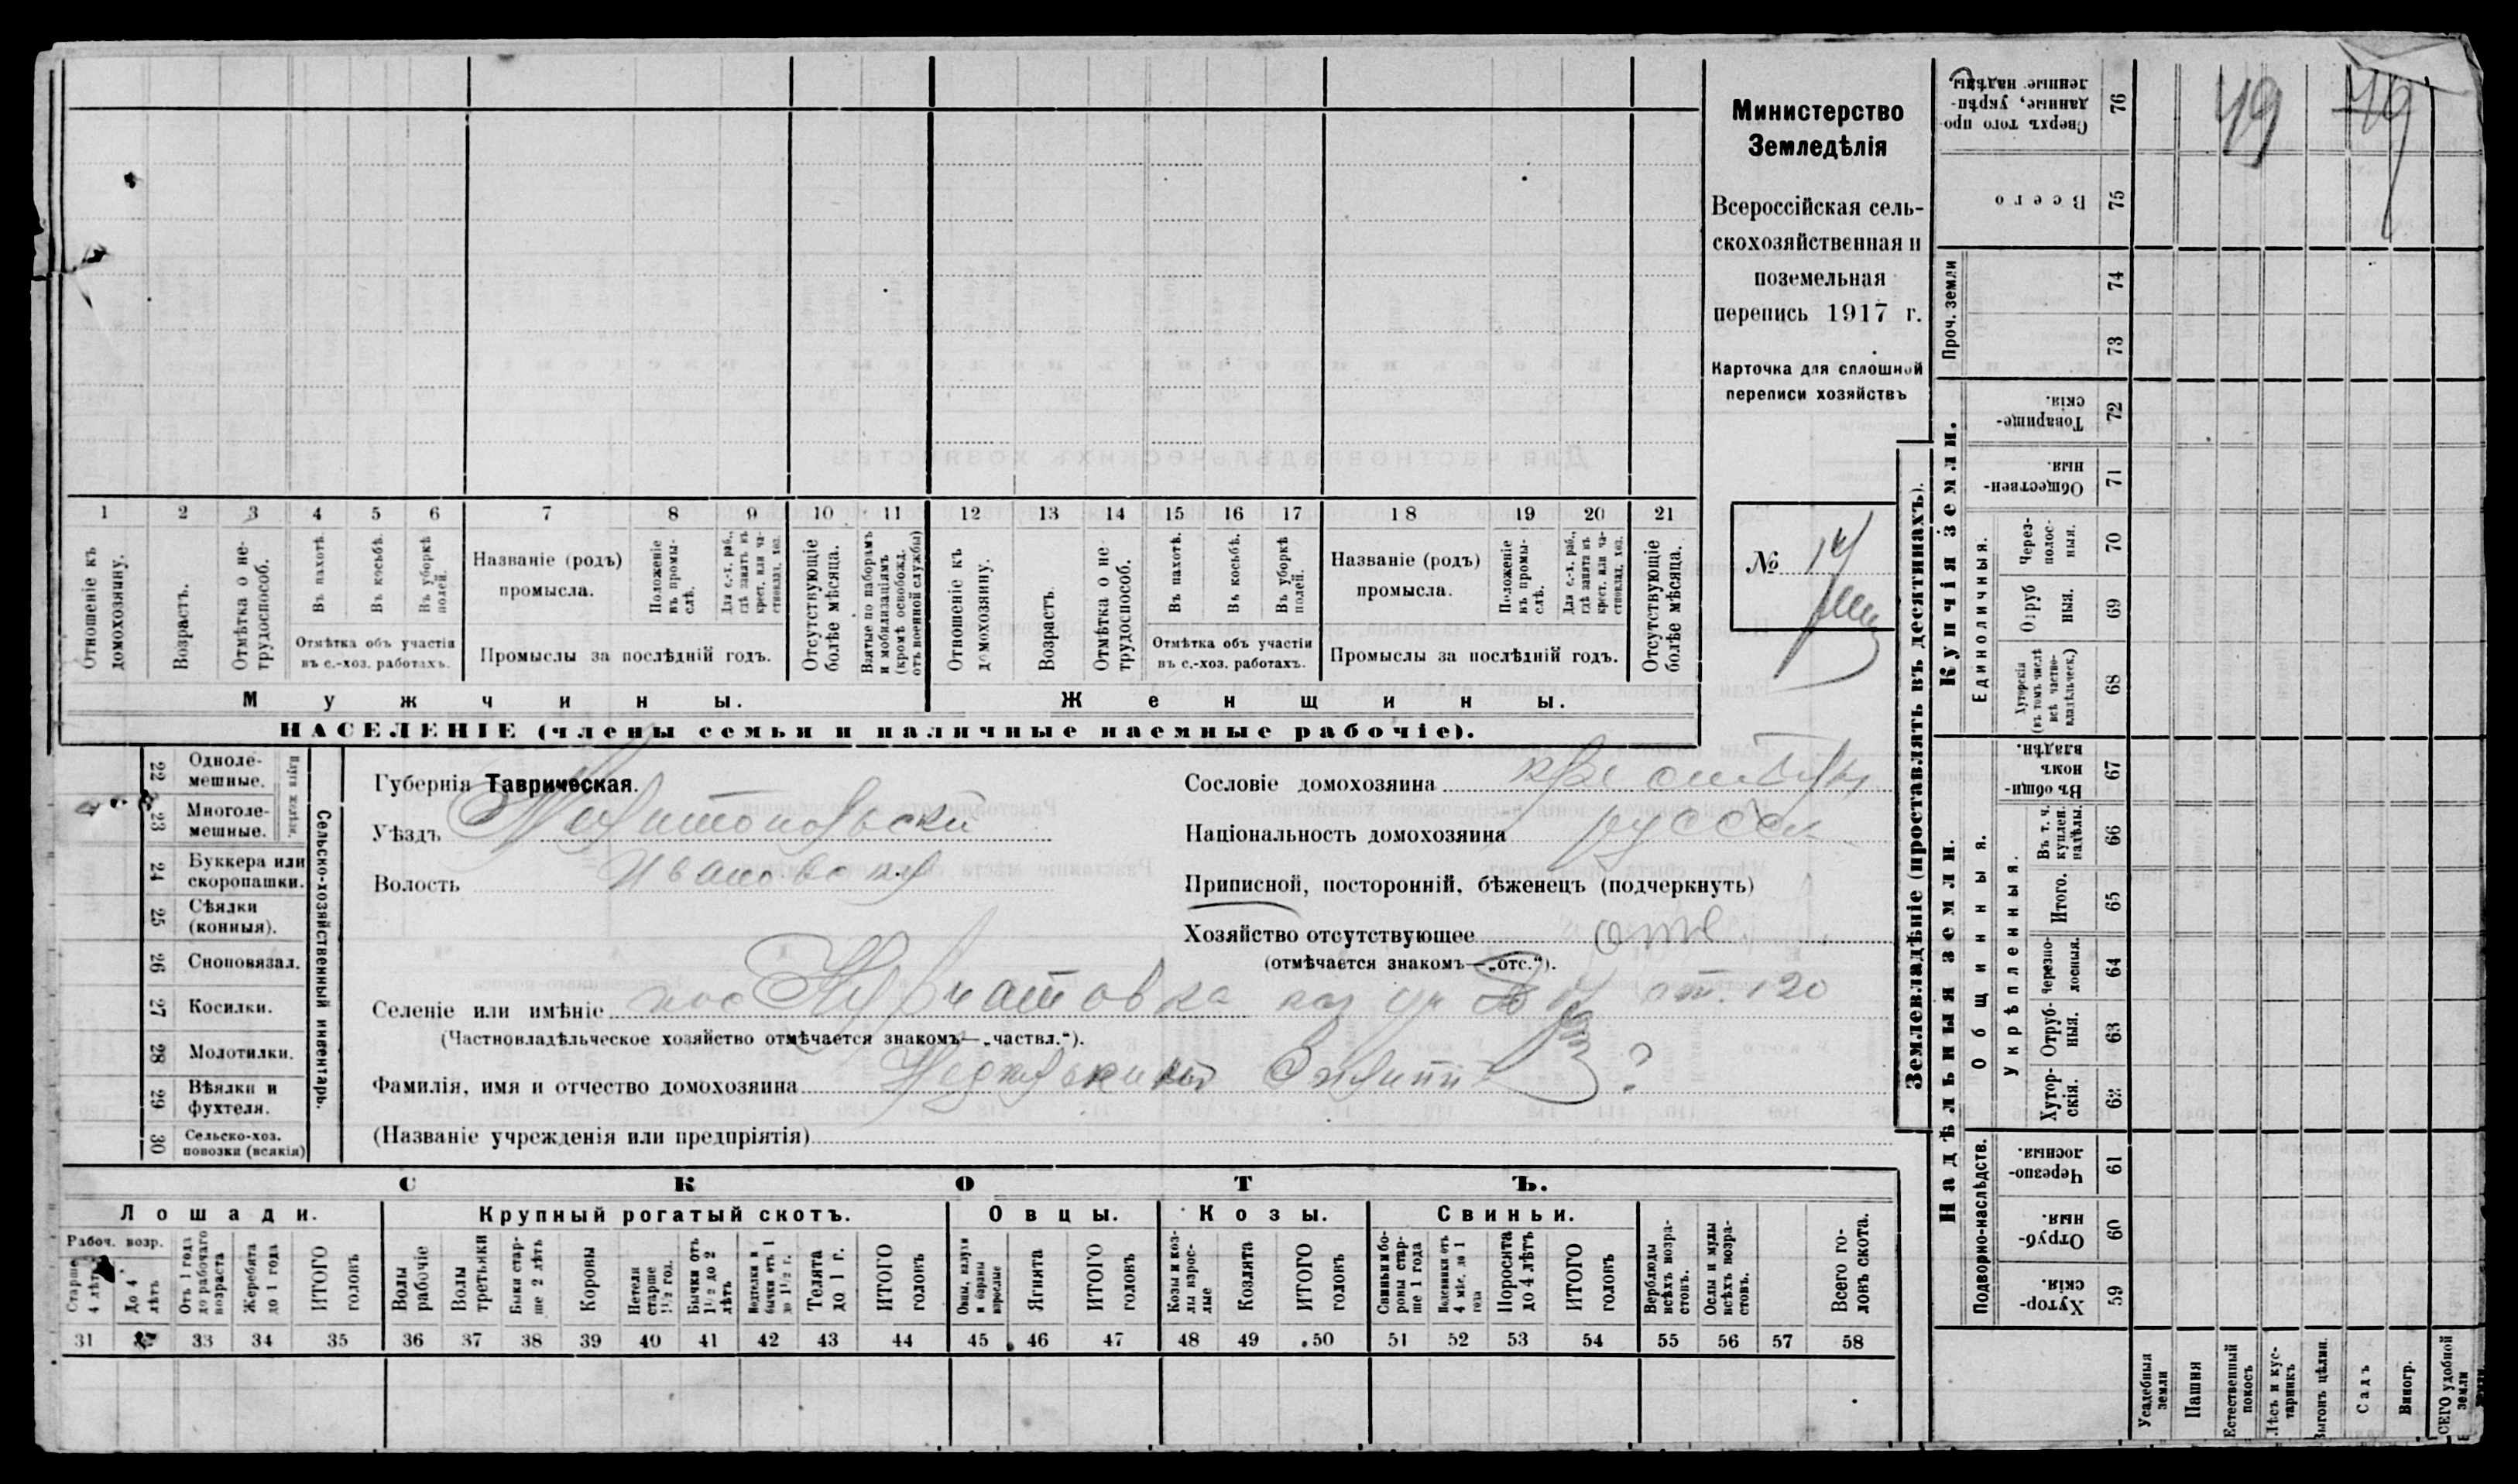 Министерство
Земледѣлія
Всероссійская сель-
скохозяйственная и
поземельная
перепись 1917 г.
Карточка для сплошной
переписи хозяйствъ
№ 14
1 2 3 4 5 6 7 8 9 10 11 12 13 14 15 16 17 18 19 20 21
Отношеніе къ домохозяину.
Возрастъ.
Отмѣтка о не-трудоспособ.
Въ пахотѣ.
Въ косьбѣ.
Въ уборкѣ полей.
Отмѣтка объ участіи
въ с.-хоз. работахъ.
Названіе (родъ)
промысла.
Положеніе въ промы-слѣ.
Для с.-х. раб., гдѣ занятъ въ крест. или ча-стновлад. хоз.
Промыслы за послѣдній годъ.
Отсутствующіе болѣе мѣсяца.
Взятые по наборамъ и мобилизаціямъ (кромѣ освобожд. отъ военной службы)
Отношеніе къ домохозяину.
Возрастъ.
Отмѣтка о не-трудоспособ.
Въ пахотѣ.
Въ косьбѣ.
Въ уборкѣ полей.
Отмѣтка объ участіи
въ с.-хоз. работахъ.
Названіе (родъ)
промысла.
Положеніе въ промы-слѣ.
Для с.-х. раб., гдѣ занята въ крест. или ча-стновлад. хоз.
Промыслы за послѣдній годъ.
Отсутствующіе болѣе мѣсяца.
Мужчины.
Женщины.
НАСЕЛЕНІЕ (члены семьи и наличные наемные рабочіе).
22 Однолемешные.
23 Многолемешные.
24 Буккера или скоропашки.
25 Сѣялки (конныя).
26 Сноповязал.
27 Косилки.
28 Молотилки.
29 Вѣялки и фухтеля.
30 Сельско-хоз. повозки (всякія)
Сельско-хозяйственный инвентарь.
Губернія Таврическая.
Уѣздъ Мелитопольскій
Волость Ивановская
Сословіе домохозяина
Національность домохозяина русск
Приписной, посторонній, бѣженецъ (подчеркнуть)
Хозяйство отсутствующее отс.
(отмѣчается знакомъ—„отс.“).
Селеніе или имѣніе пос
(Частновладѣльческое хозяйство отмѣчается знакомъ—„частвл.“).
Фамилія, имя и отчество домохозяина Филипп ?
(Названіе учрежденія или предпріятія)
СКОТЪ.
Лошади.
Крупный рогатый скотъ.
Овцы.
Козы.
Свиньи.
Рабоч. возр.
Старше 4 лѣтъ
До 4 лѣтъ
Отъ 1 года до рабочаго возраста
Жеребята до 1 года
ИТОГО головъ
Волы рабочіе
Волы третьяки
Быки стар-ше 2 лѣтъ
Коровы
Нетели старше 1½ год.
Бычки отъ 1½ до 2 лѣтъ
Телки и бычки отъ 1 до 1½ г.
Телята до 1 г.
ИТОГО головъ
Овцы, валухи и бараны взрослые
Ягнята
ИТОГО головъ
Козы и коз-лы взрос-лые
Козлята
ИТОГО головъ
Свиньи и бо-ровы стар-ше 1 года
Подсвинки отъ 4 мѣс. до 1 года
Поросята до 4 лѣтъ
ИТОГО головъ
Верблюды всѣхъ возра-стовъ.
Ослы и мулы всѣхъ возра-стовъ.
Всего го-ловъ скота.
31 33 34 35 36 37 38 39 40 41 42 43 44 45 46 47 48 49 50 51 52 53 54 55 56 57 58
Землевладѣніе (проставлять въ десятинахъ).
49
49
Сверхъ того про-данные, укрѣп-ленные надѣлы 76
Всего 75
Проч. земли 74 73
Купчія земли.
Товарище-скія. 72
Обществен-ныя 71
Единоличныя.
Через-полос-ныя. 70
Отруб-ныя. 69
Хуторскія (въ томъ числѣ всѣ частно-владѣльческ.) 68
Надѣльныя земли.
Общинныя.
Въ общин-номъ владѣн. 67
Укрѣпленныя.
Въ т. ч. куплен. надѣлы. 66
Итого. 65
Черезпо-лосныя. 64
Отруб-ныя. 63
Хутор-скія. 62
Подворно-наслѣдств.
Черезпо-лосныя. 61
Отруб-ныя. 60
Хутор-скія. 59
Усадебныя земли
Пашня
Естественный покосъ
Лѣсъ и кус-тарникъ
Выгонъ цѣлин.
Садъ
Виногр.
ВСЕГО удобной земли